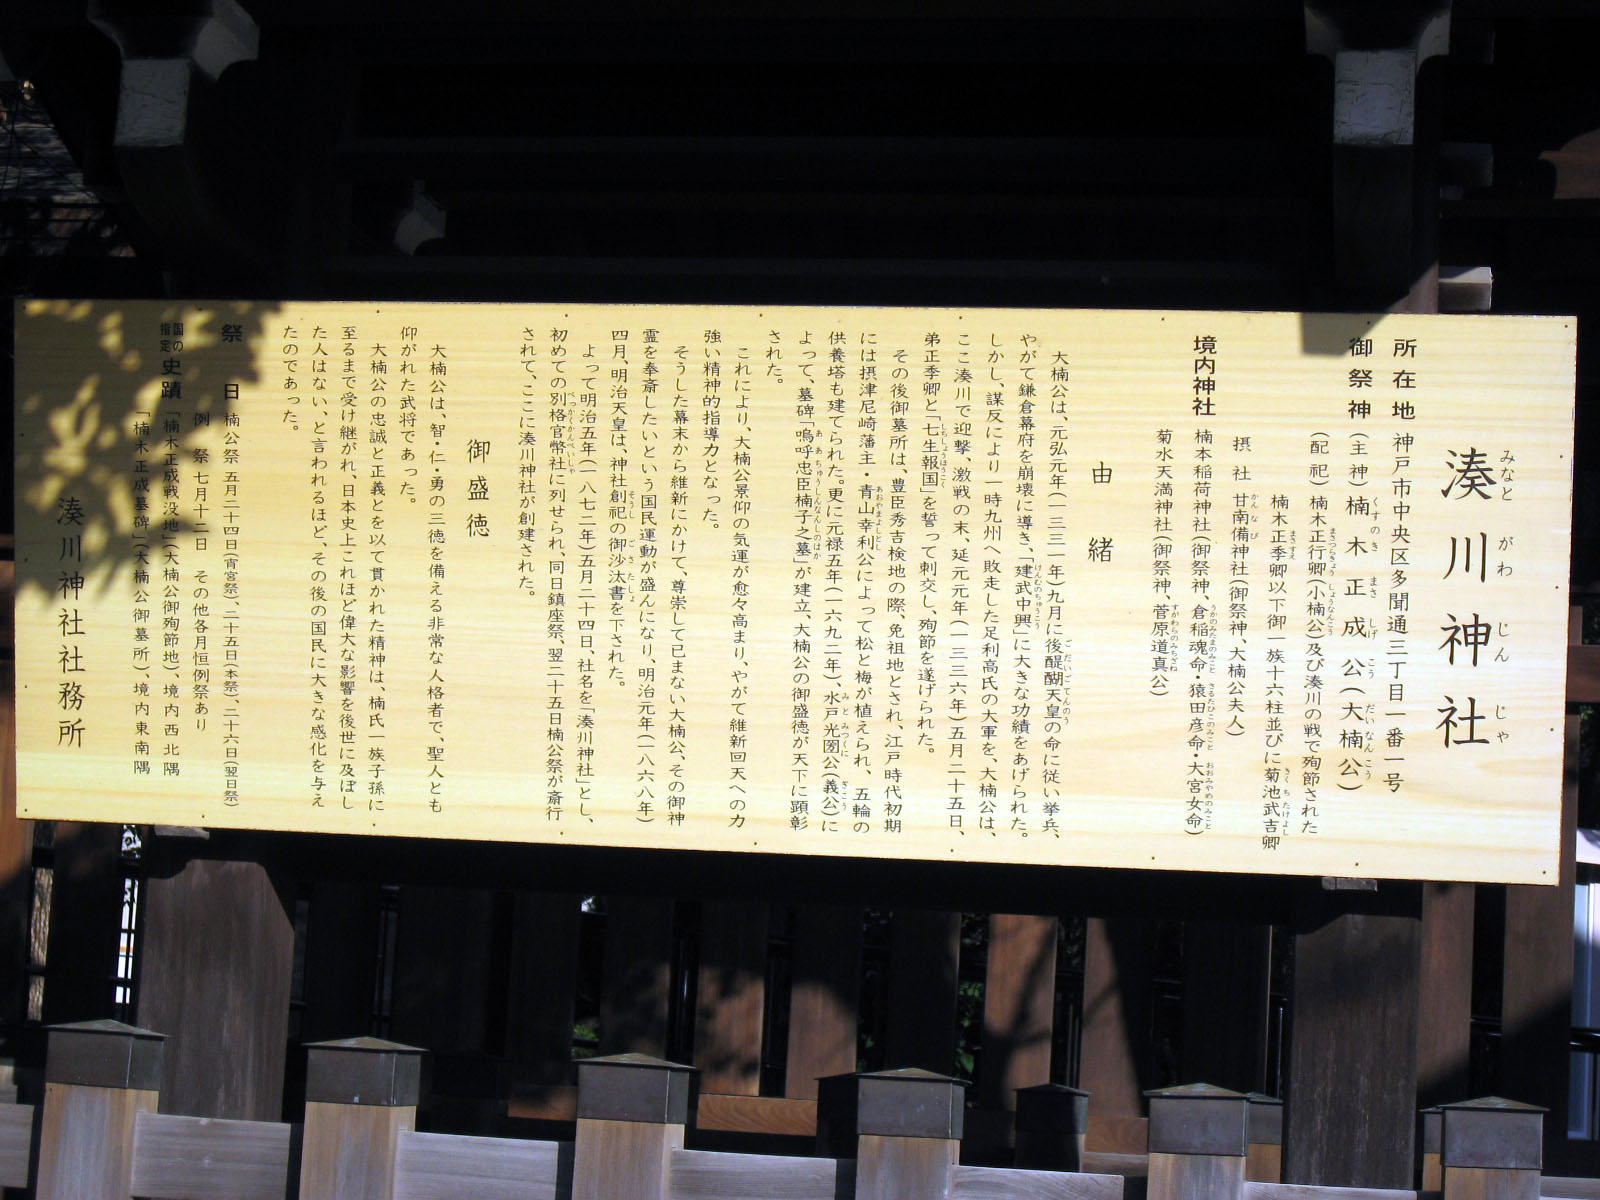 湊川神社
所在地 神戸市中央区多聞通三丁目一番一号
御祭神(主神)楠木正成公(大楠公)
(配祀)楠木正行卿(小楠公)及び湊川の戦で殉節された
楠木正季卿以下御一族十六柱並びに菊池武吉卿
摂社 甘南備神社(御祭神、大楠公夫人)
境内神社 楠本稲荷神社(御祭神、倉稲魂命・猿田彦命・大宮女命)
菊水天満神社(御祭神、菅原道真公)
由緒
大楠公は、元弘元年(一三三一年)九月に後醍醐天皇の命に従い挙兵、
やがて鎌倉幕府を崩壊に導き、「建武中興」に大きな功績をあげられた。
しかし、謀反により一時九州へ敗走した足利高氏の大軍を、大楠公は、
ここ湊川で迎撃、激戦の末、延元元年(一三三六年)五月二十五日、
弟正季卿と「七生報国」を誓って刺交し、殉節を遂げられた。
その後御墓所は、豊臣秀吉検地の際、免祖地とされ、江戸時代初期
には摂津尼崎藩主・青山幸利公によって松と梅が植えられ、五輪の
供養塔も建てられた。更に元禄五年(一六九二年)、水戸光圀公(義公)に
よって、墓碑「嗚呼忠臣楠子之墓」が建立、大楠公の御盛徳が天下に顕彰
された。
これにより、大楠公景仰の気運が愈々高まり、やがて維新回天への力
強い精神的指導力となった。
そうした幕末から維新にかけて、尊崇して已まない大楠公、その御神
霊を奉斎したいという国民運動が盛んになり、明治元年(一八六八年)
四月、明治天皇は、神社創祀の御沙汰書を下された。
よって明治五年(一八七二年)五月二十四日、社名を「湊川神社」とし、
初めての別格官幣社に列せられ、同日鎮座祭、翌二十五日楠公祭が斎行
されて、ここに湊川神社が創建された。
御盛徳
大楠公は、智・仁・勇の三徳を備える非常な人格者で、聖人とも
仰がれた武将であった。
大楠公の忠誠と正義とを以て貫かれた精神は、楠氏一族子孫に
至るまで受け継がれ、日本史上これほど偉大な影響を後世に及ぼし
た人はない、と言われるほど、その後の国民に大きな感化を与え
たのであった。
祭日 楠公祭 五月二十四日(宵宮祭)、二十五日(本祭)、二十六日(翌日祭)
例祭 七月十二日 その他各月恒例祭あり
国の指定史蹟「楠木正成戦没地」(大楠公御殉節地)、境内西北隅
「楠木正成墓碑」(大楠公御墓所)、境内東南隅
湊川神社社務所